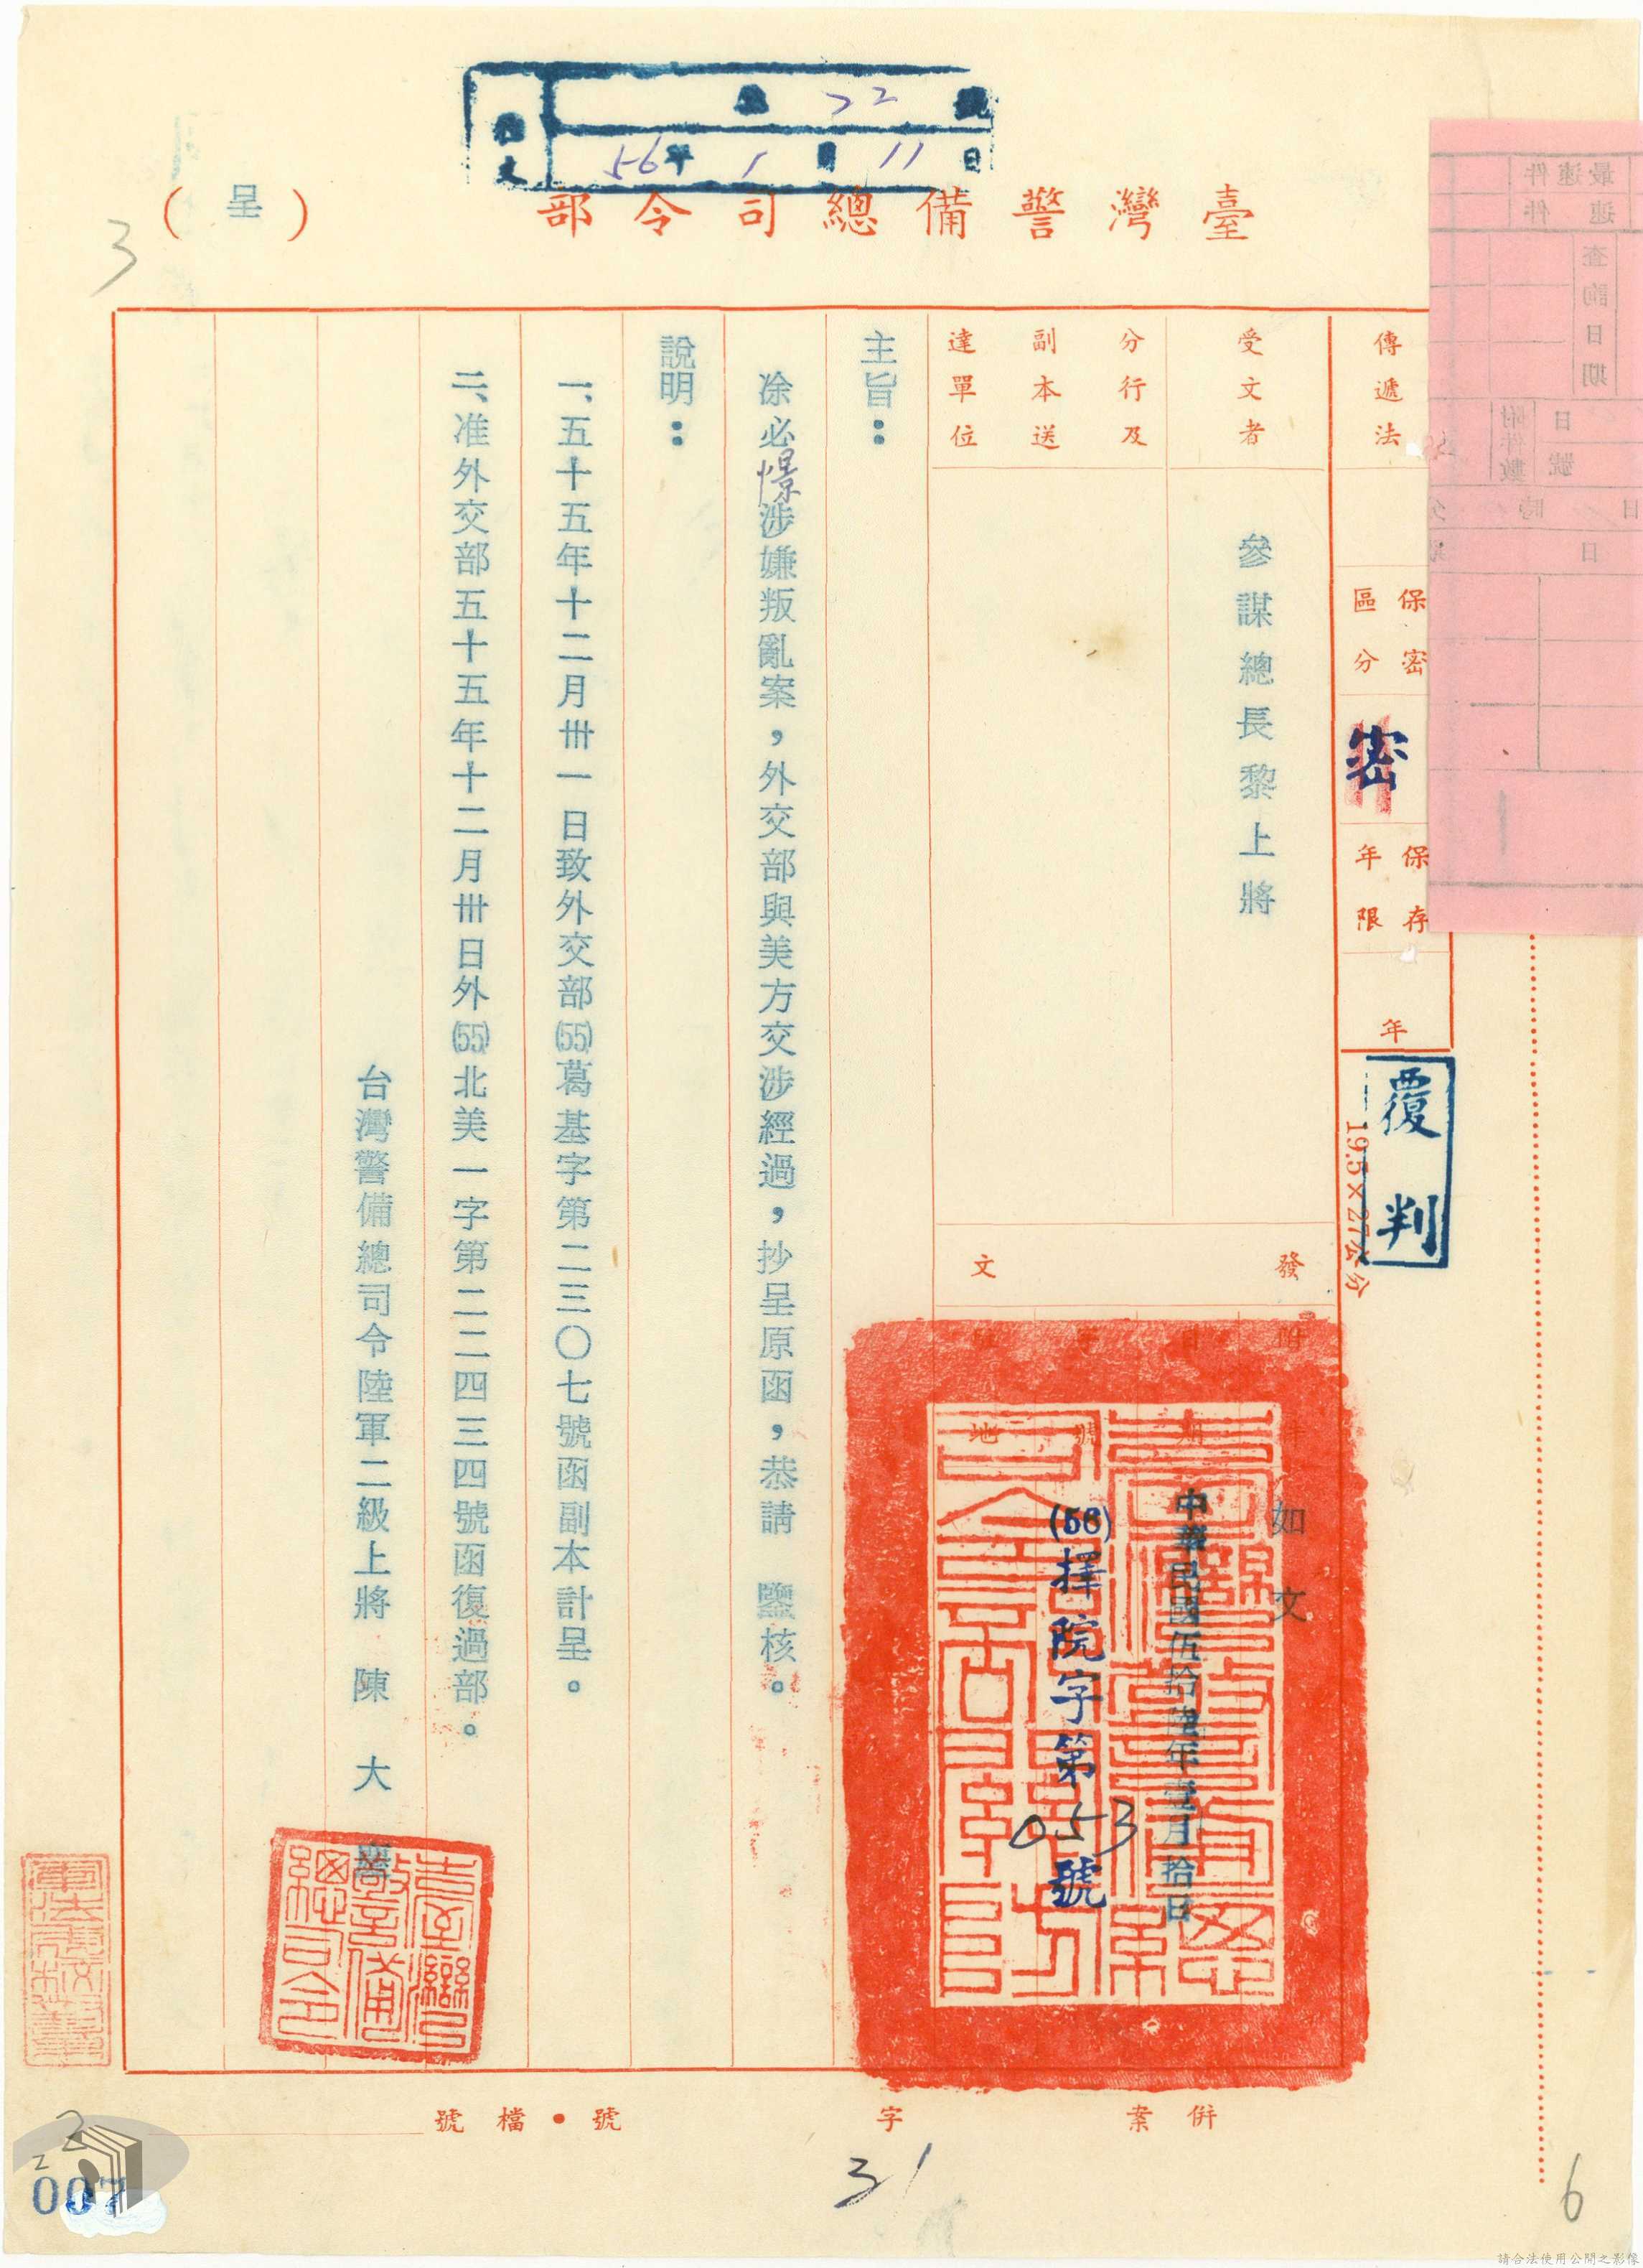 收文
號 22
56年 1月 11日
臺灣警備總司令部
（呈）
3
傳遞法
保密區分
密
保存年限
年
覆判
19.5×27公分
受文者
參謀總長黎上將
分行及
副本送
達單位
發文
附件
如文
日期
中華民國伍拾陸年壹月拾日
字號
(56)揮院字第053號
地
主旨：
涂必憬涉嫌叛亂案，外交部與美方交涉經過，抄呈原函，恭請 鑒核。
說明：
一、五十五年十二月卅一日致外交部(55)葛基字第二三〇七號函副本計呈。
二、准外交部五十五年十二月卅日外(55)北美一字第二二四三四號函復過部。
台灣警備總司令陸軍二級上將 陳大慶
臺灣警備總司令
最速件
速件
查詢日期
附件數
日
號
日 時 分
併案
字
號・檔號
31
6
2
2
007
請合法使用公開之影像